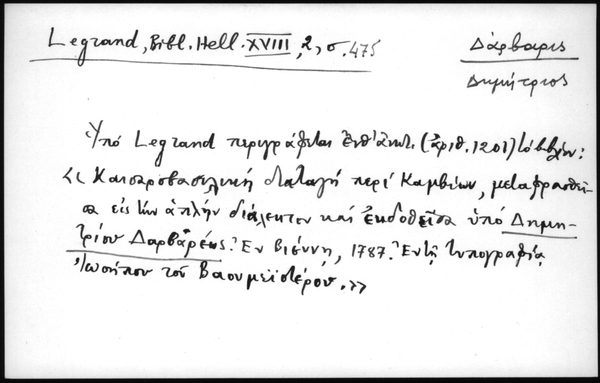 Legrand, Bibl. Hell. XVIII, 2, σ. 475
Δάρβαρις
Δημήτριος
Ὑπό Legrand περιγράφεται ἐνθ' ἀνωτ. (ἀριθ. 1201) τό βιβλίον:
<< Καισαροβασιλική διαταγή περί Καμβίων, μεταφρασθεῖ-
σα εἰς τήν ἁπλήν διάλεκτον καί ἐκδοθεῖσα ὑπό Δημη-
τρίου Δαρβάρεως. Ἐν Βιέννῃ, 1787. Ἐν τῇ τυπογραφίᾳ
Ἰωσήπου τοῦ Βαουμεϊστέρου. >>